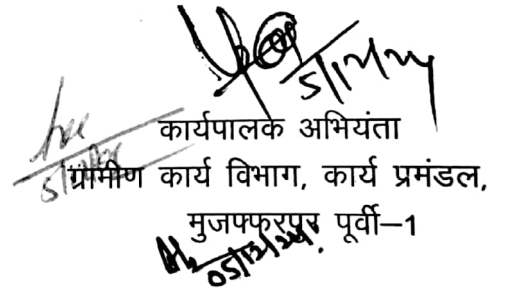 5/12/24
कार्यपालक अभियंता
ग्रामीण कार्य विभाग, कार्य प्रमंडल,
मुजफ्फरपुर पूर्वी–1
05/12/24